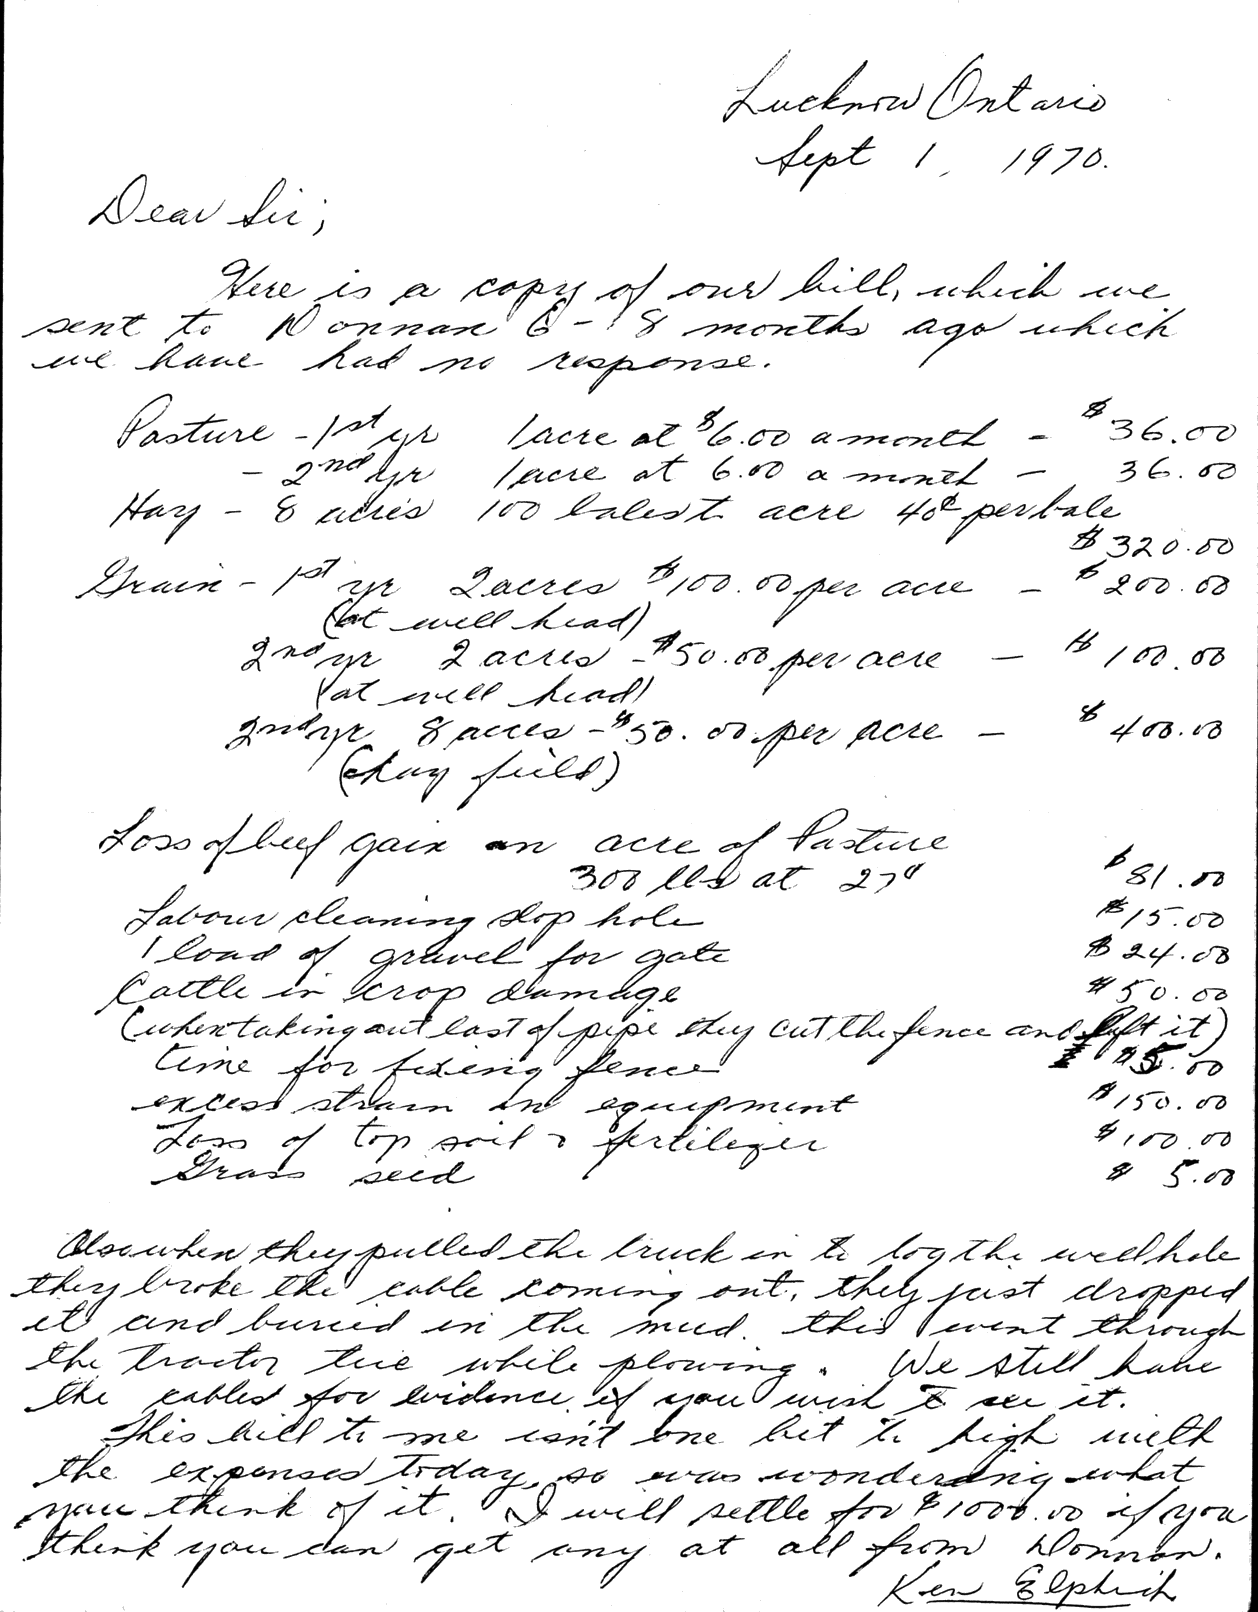 Lucknow Ontario
Sept 1, 1970.
Dear Sir;
Here is a copy of our bill, which we
sent to Donnan 6 - 8 months ago which
we have had no response.
Pasture - 1st yr 1 acre at $6.00 a month - $36.00
- 2nd yr 1 acre at 6.00 a month - 36.00
Hay - 8 acres 100 bales to acre 40¢ per bale
$320.00
Grain - 1st yr 2 acres $100.00 per acre - $200.00
(at well head)
2nd yr 2 acres - $50.00 per acre - $100.00
(at well head)
2nd yr 8 acres - $50.00 per acre - $400.00
(hay field)
Loss of beef gain on acre of Pasture
300 lbs at 27¢ $81.00
Labour cleaning slop hole $15.00
1 load of gravel for gate $24.00
Cattle in crop damage $50.00
(when taking out last of pipe they cut the fence and left it)
time for fixing fence $5.00
excess strain on equipment $150.00
Loss of top soil & fertilizer $100.00
Grass seed $5.00
Also when they pulled the truck in to log the well hole
they broke the cable coming out, they just dropped
it and buried in the mud. this went through
the tractor tire while plowing. We still have
the cables for evidence if you wish to see it.
This bill to me isn't one bit to high with
the expenses today, so was wondering what
you think of it. I will settle for $1000.00 if you
think you can get any at all from Donnan.
Ken